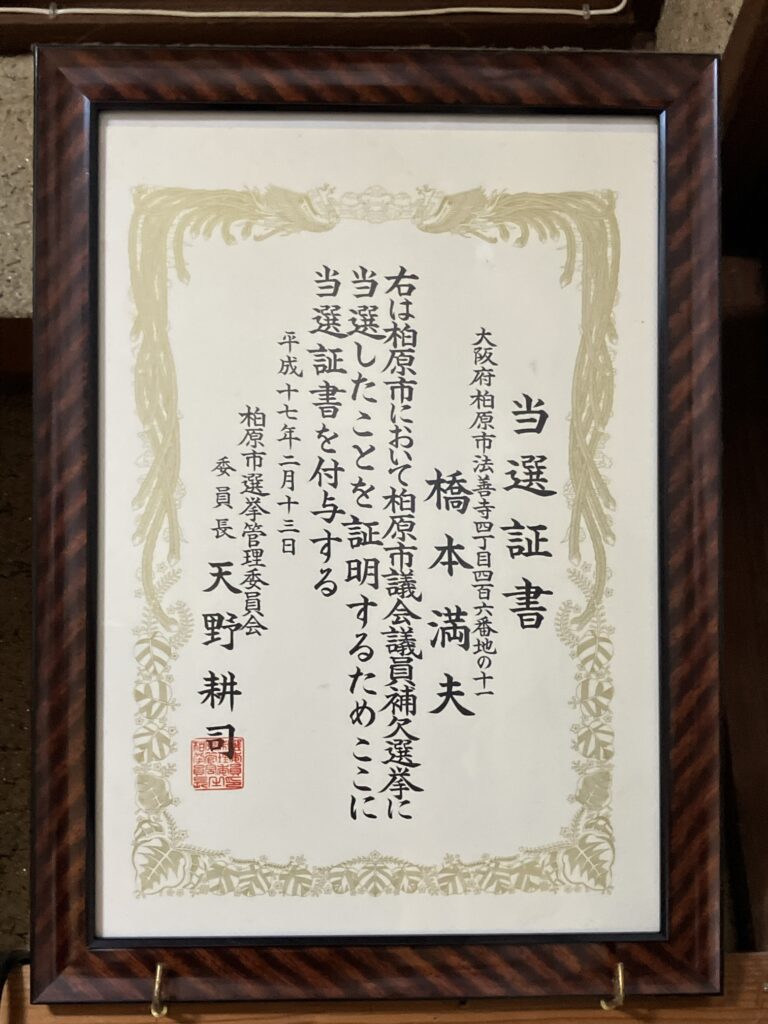 当選証書
大阪府柏原市法善寺四丁目四百六番地の十一
橋本満夫
右は柏原市において柏原市議会議員補欠選挙に
当選したことを証明するためここに
当選証書を付与する
平成十七年二月十三日
柏原市選挙管理委員会
委員長 天野耕司